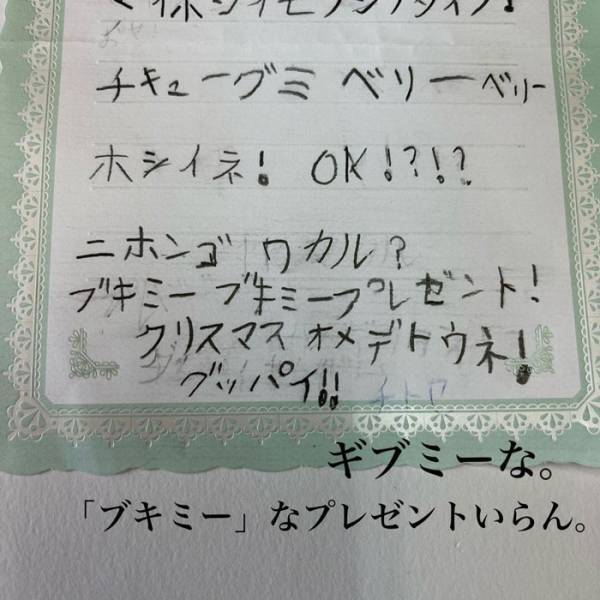 チキューグミ ベリーベリー
ホシイネ! OK!?!?
ニホンゴ ワカル?
ブキミーブキミープレゼント!
クリスマス オメデトウネ!
グッパイ!!
ギブミーな。
「ブキミー」なプレゼントいらん。